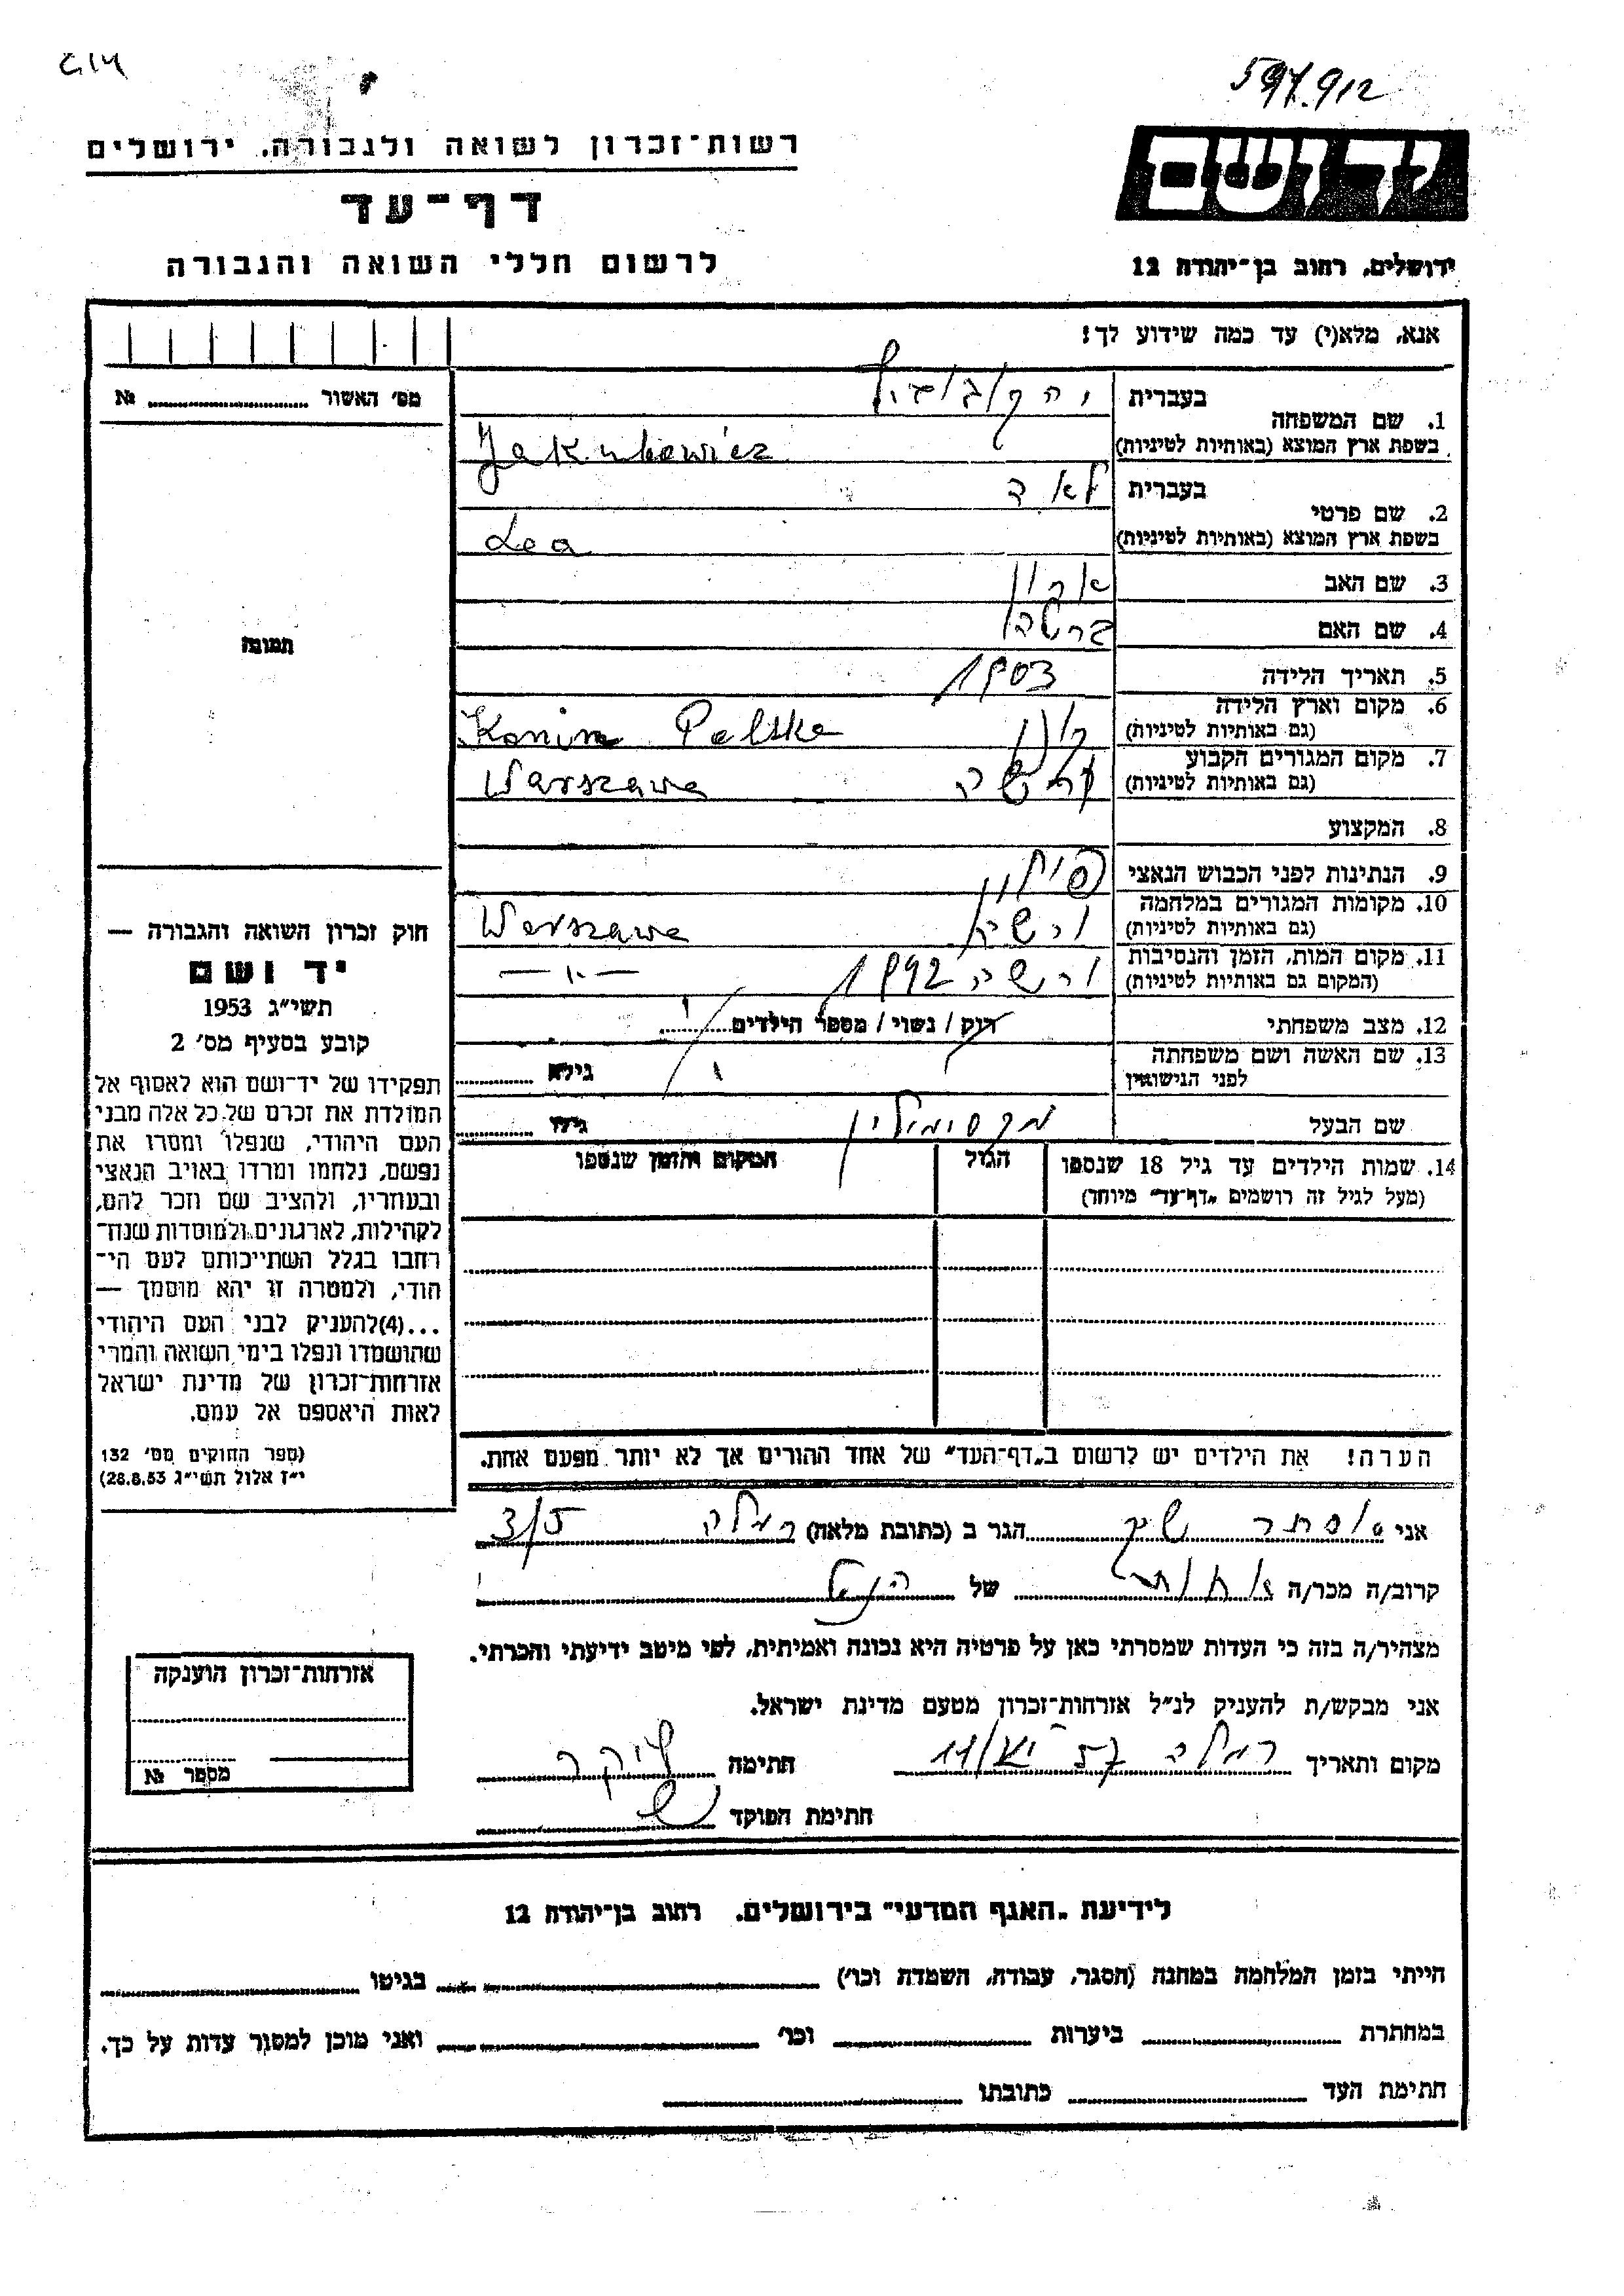 597.912
רשות־זכרון לשואה ולגבורה, ירושלים
יד ושם
דף־עד
לרשום חללי השואה והגבורה
ירושלים, רחוב בן־יהודה 12
אנא, מלא(י) עד כמה שידוע לך!
מס' האשור № ........
תמונה
חוק זכרון השואה והגבורה —
יד ושם
תשי"ג 1953
קובע בסעיף מס' 2
תפקידו של יד־ושם הוא לאסוף אל
המולדת את זכרם של כל אלה מבני
העם היהודי, שנפלו ומסרו את
נפשם, נלחמו ומרדו באויב הנאצי
ובעוזריו, ולהציב שם וזכר להם,
לקהילות, לארגונים ולמוסדות שנח־
רבו בגלל השתייכותם לעם הי־
הודי, ולמטרה זו יהא מוסמך —
...(4)להעניק לבני העם היהודי
שהושמדו ונפלו בימי השואה והמרי
אזרחות־זכרון של מדינת ישראל
לאות היאספם אל עמם.
(ספר החוקים מס' 132
י"ז אלול תשי"ג 28.8.53)
1. שם המשפחה
בעברית
בשפת ארץ המוצא (באותיות לטיניות) Jakubowicz
2. שם פרטי
בעברית לאה
בשפת ארץ המוצא (באותיות לטיניות) Lea
3. שם האב
4. שם האם
5. תאריך הלידה 1903
6. מקום וארץ הלידה
(גם באותיות לטיניות) קונין Konin Polska
7. מקום המגורים הקבוע
(גם באותיות לטיניות) ורשה Warszawa
8. המקצוע
9. הנתינות לפני הכבוש הנאצי פולין
10. מקומות המגורים במלחמה
(גם באותיות לטיניות) ורשה Warszawa
11. מקום המות, הזמן והנסיבות
(המקום גם באותיות לטיניות) ורשה 1942 —〃—
12. מצב משפחתי רוק / נשוי / מספר הילדים ........
13. שם האשה ושם משפחתה
לפני הנישואין גילא ........
שם הבעל מקסימיליאן גילו ........
14. שמות הילדים עד גיל 18 שנספו הגיל המקום והזמן שנספו
(מעל לגיל זה רושמים "דף־עד" מיוחד)
הערה! את הילדים יש לרשום ב"דף־העד" של אחד ההורים אך לא יותר מפעם אחת.
אני אסתר הגר ב (כתובת מלאה) רמלה 3/5
קרוב/ה מכר/ה אחות של הנ"ל
מצהיר/ה בזה כי העדות שמסרתי כאן על פרטיה היא נכונה ואמיתית, לפי מיטב ידיעתי והכרתי.
אני מבקש/ת להעניק לנ"ל אזרחות־זכרון מטעם מדינת ישראל.
מקום ותאריך רמלה חתימה
חתימת הפוקד
אזרחות־זכרון הוענקה
מספר №
לידיעת "האגף המדעי" בירושלים, רחוב בן־יהודה 12
הייתי בזמן המלחמה במחנה (הסגר, עבודה, השמדה וכו') ........ בגיטו ........
במחתרת ........ ביערות ........ וכו' ........ ואני מוכן למסור עדות על כך.
חתימת העד ........ כתובתו ........